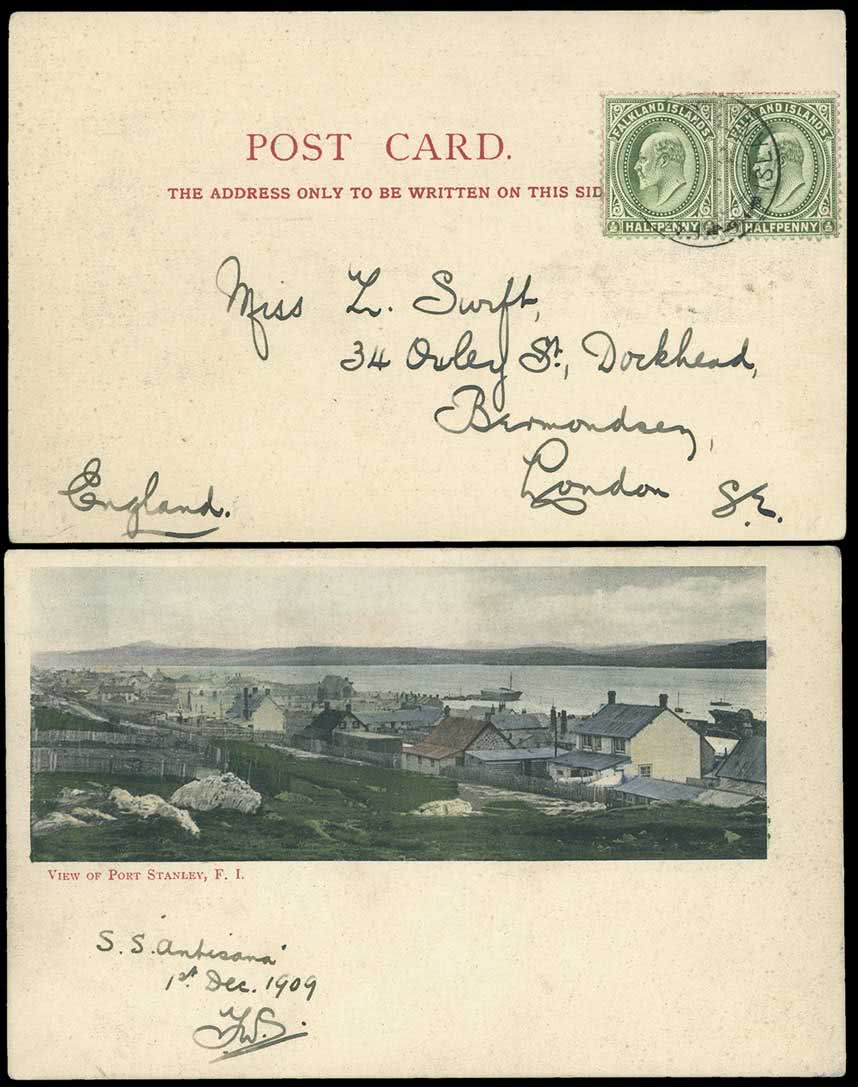 POST CARD.
THE ADDRESS ONLY TO BE WRITTEN ON THIS SID
FALKLAND ISLANDS
HALFPENNY
FALKLAND ISLANDS
HALFPENNY
Miss L. Swift,
34 Oxley St., Dockhead,
Bermondsey,
London S.E.
England.
VIEW OF PORT STANLEY, F. I.
S.S. "Antisana"
1st Dec. 1909